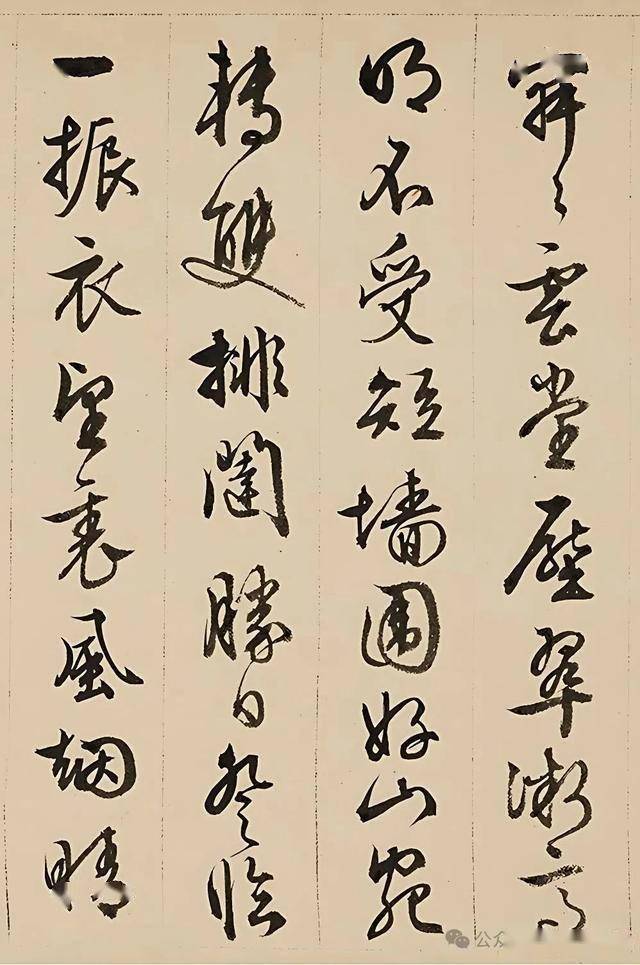 雲堂壓翠微高
明不受短墻圍好山宛
轉雙排闥勝日登臨
一振衣望裏風烟晴
公众